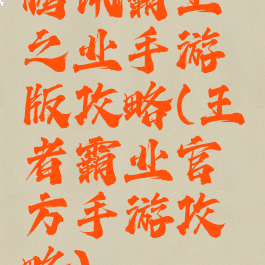 腾讯霸王
之业手游
版攻略(王
者霸业官
方手游攻
略)